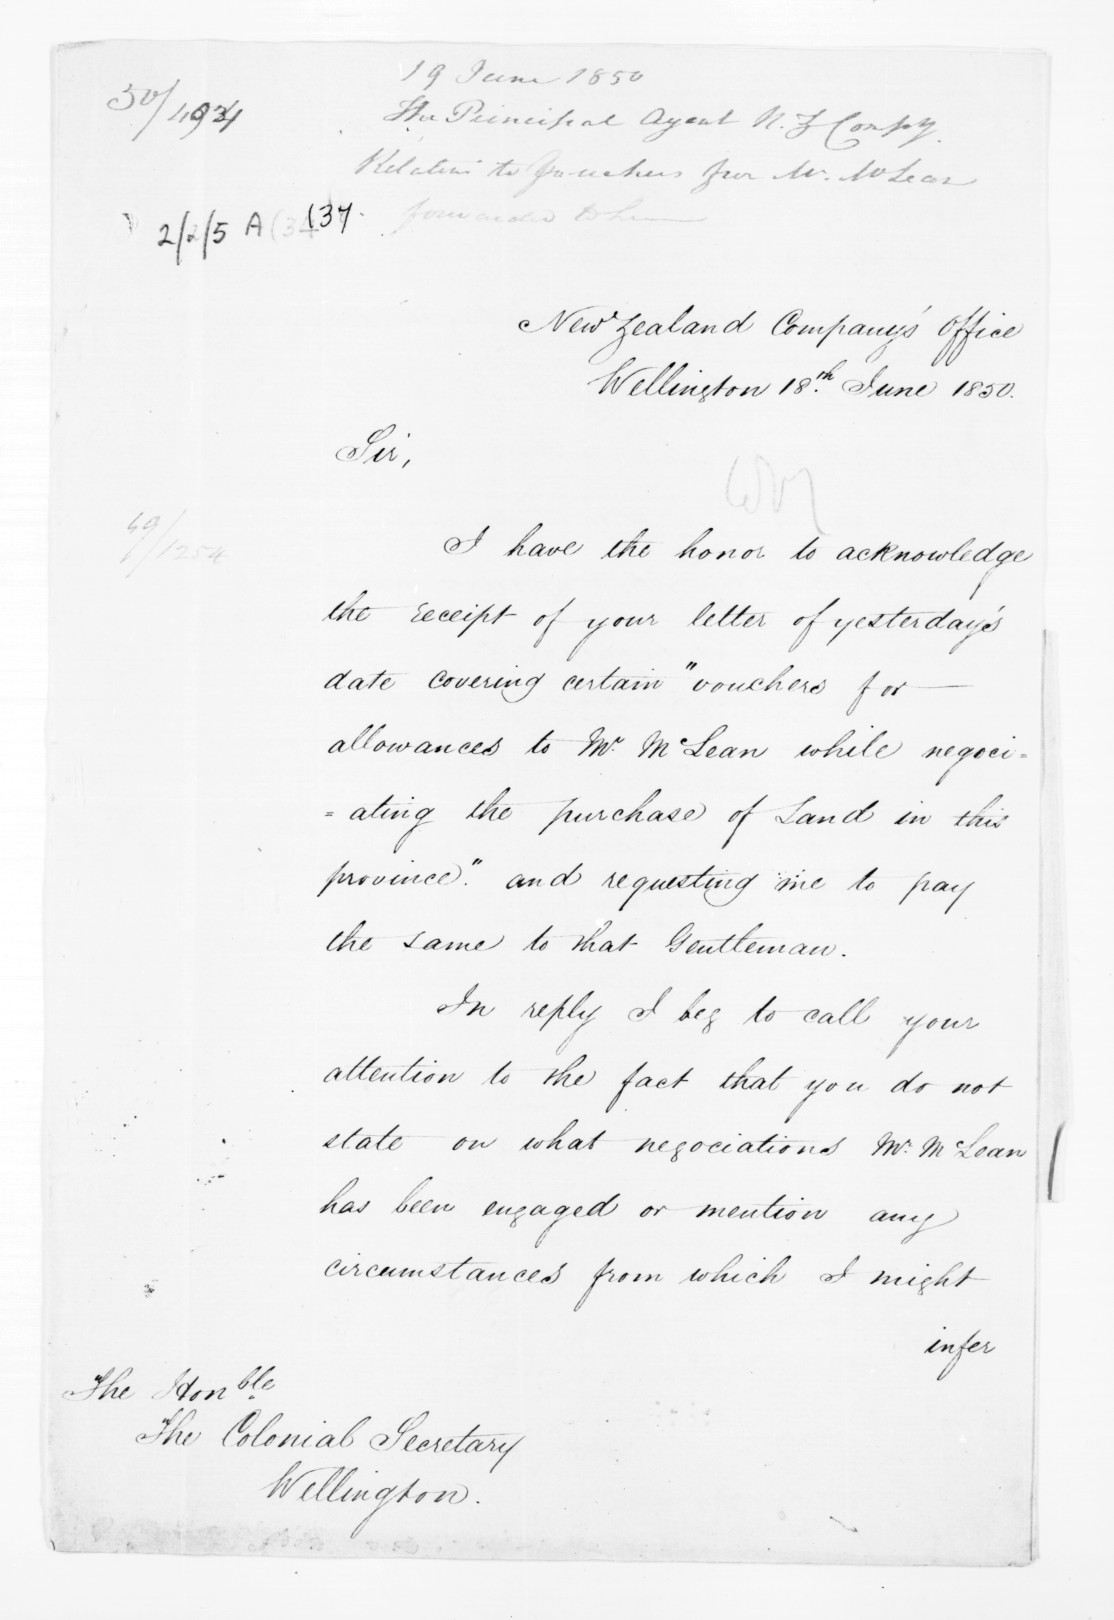 19 June 1850
50/
The Principal Agent N. Z. Compy.
Relative to Vouchers for Mr. McLean
forwarded to him
2/2/5 A (34 (37.
New Zealand Company's Office
Wellington 18th. June 1850.
Sir,
49/1254
I have the honor to acknowledge
the receipt of your letter of yesterday's
date covering certain "vouchers for —
allowances to Mr. McLean while negoci=
=ating the purchase of Land in this
province." and requesting me to pay
the same to that Gentleman.
In reply I beg to call your
attention to the fact that you do not
state on what negociations Mr. McLean
has been engaged or mention any
circumstances from which I might
infer
The Honble.
The Colonial Secretary
Wellington.